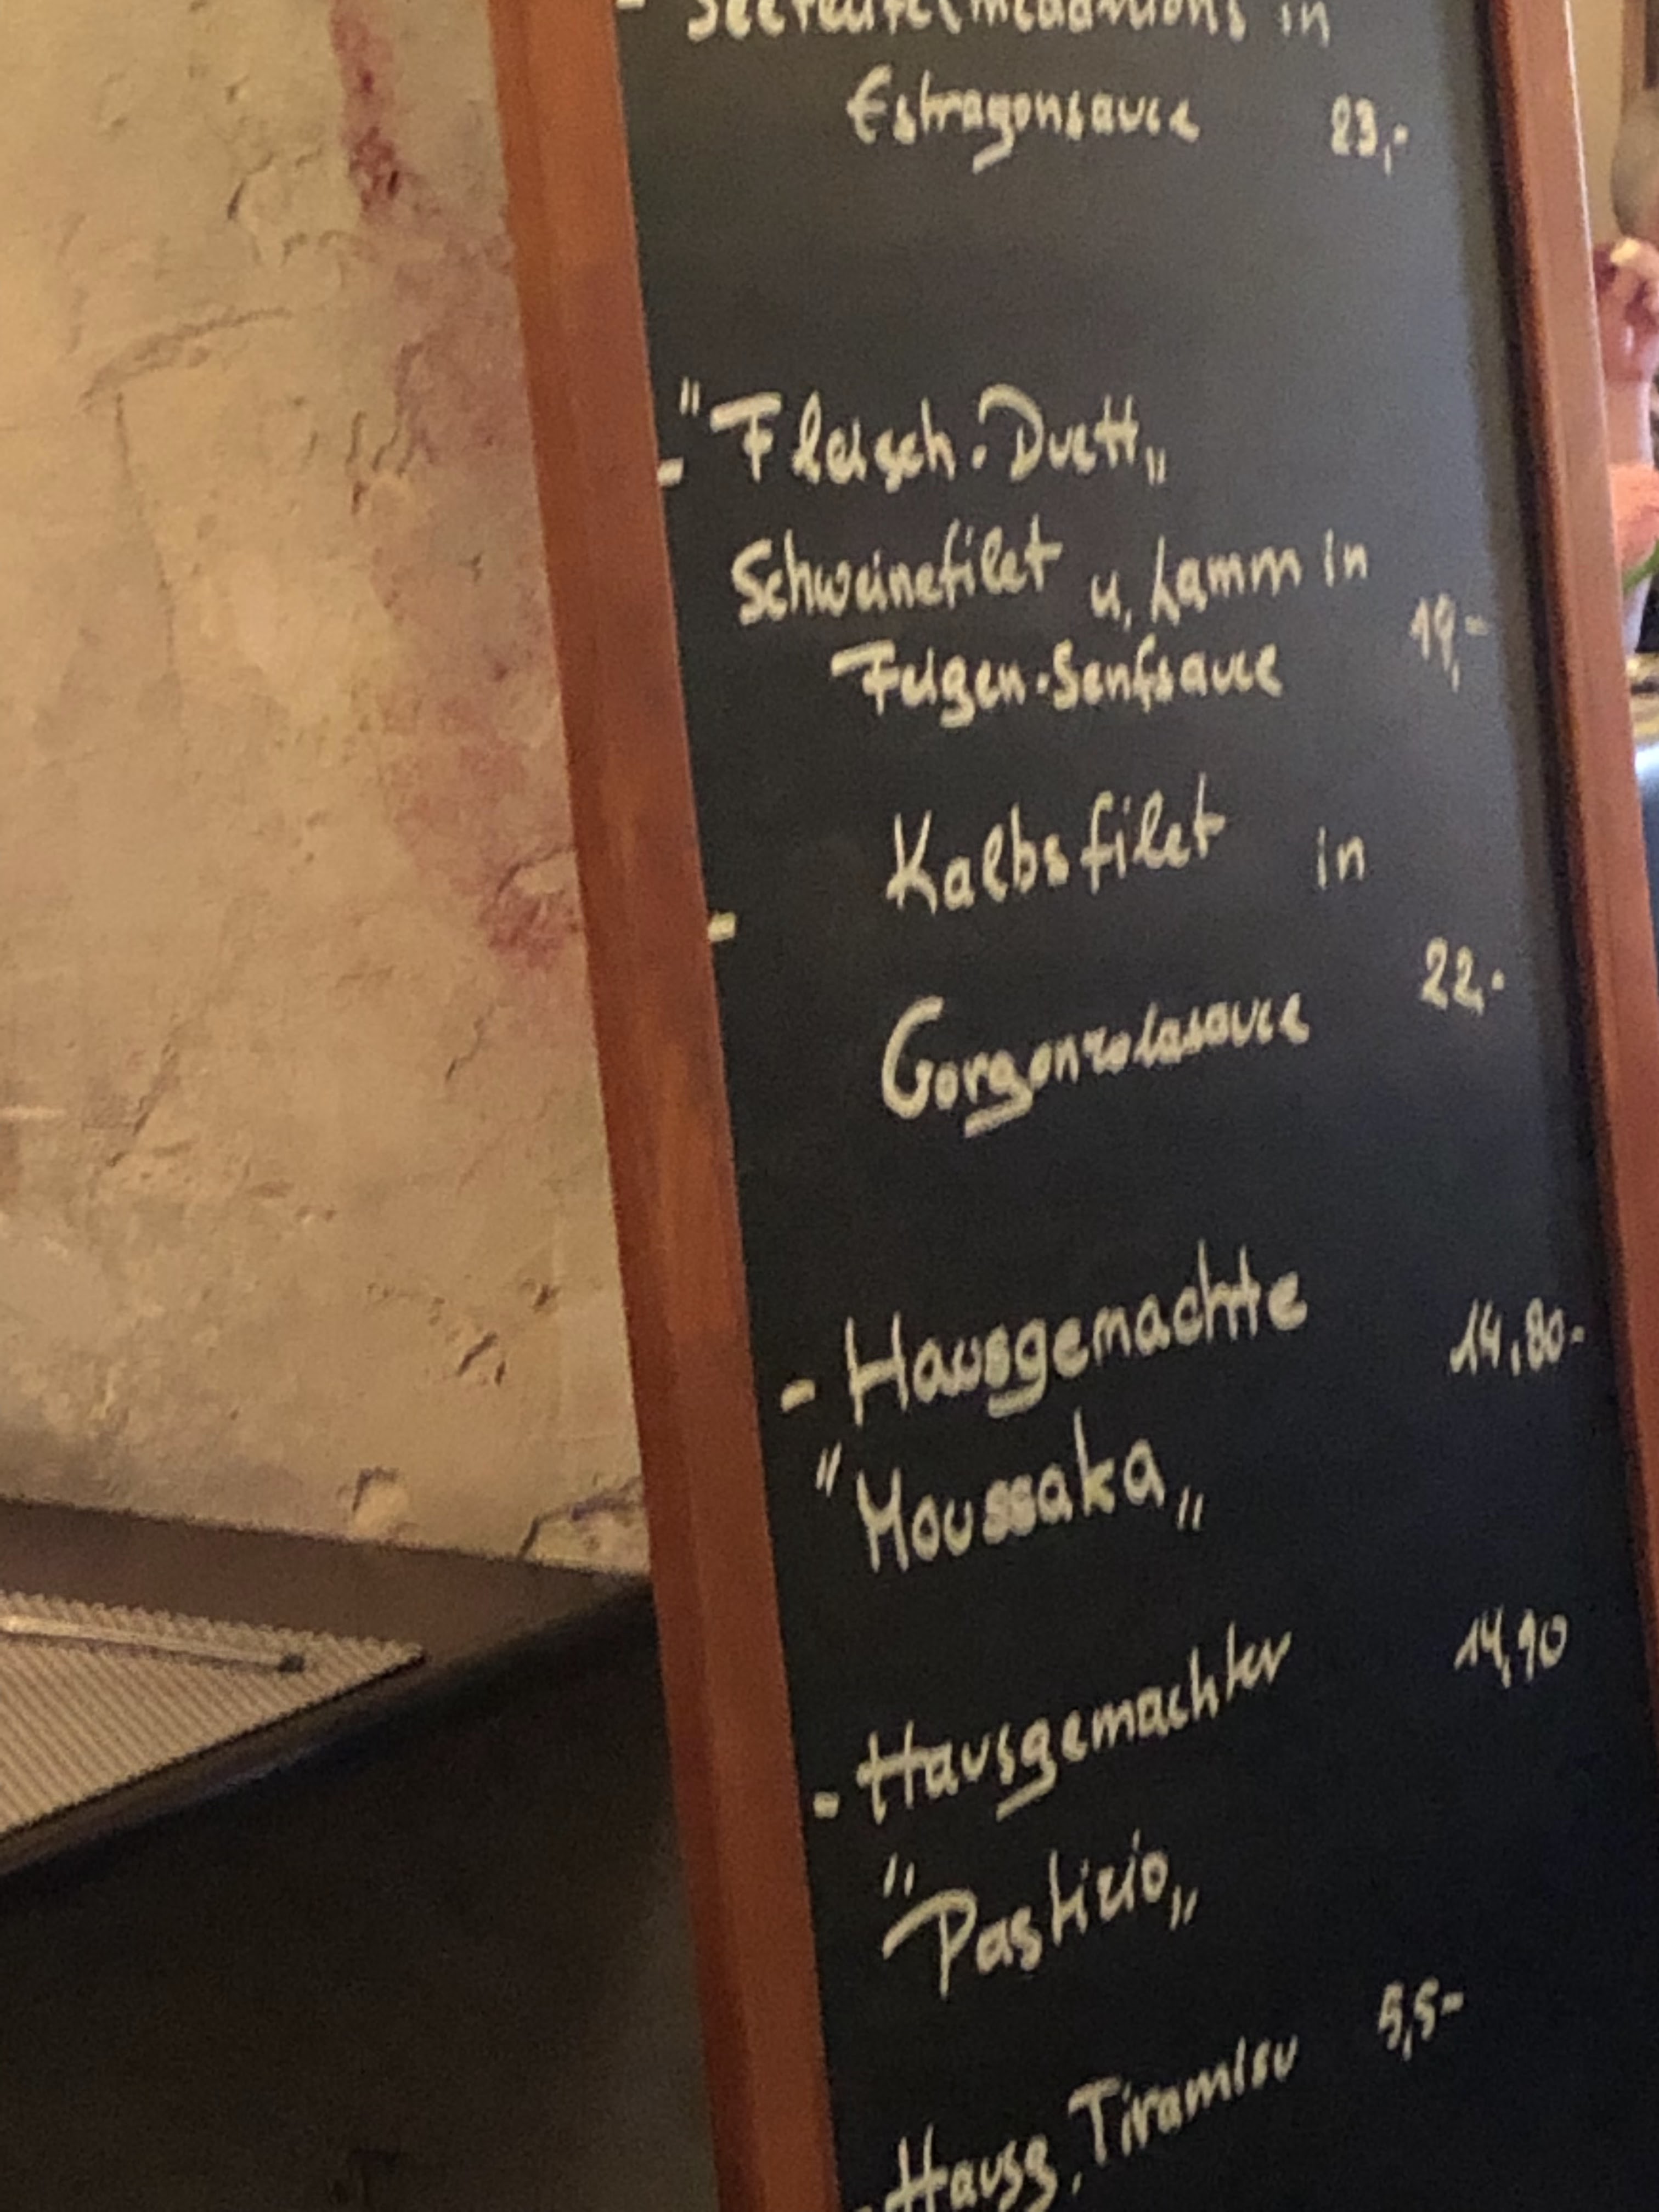 - Seeteufelmedaillons in
Estragonsauce 23,-
- "Fleisch-Duett„
Schweinefilet u, Lamm in
Feigen-Senfsauce 19,-
- Kalbsfilet in
Gorgonzolasauce 22,-
- Hausgemachte 14,80-
"Moussaka„
- Hausgemachter 14,90
"Pastizio„
- Hausg, Tiramisu 5,5-